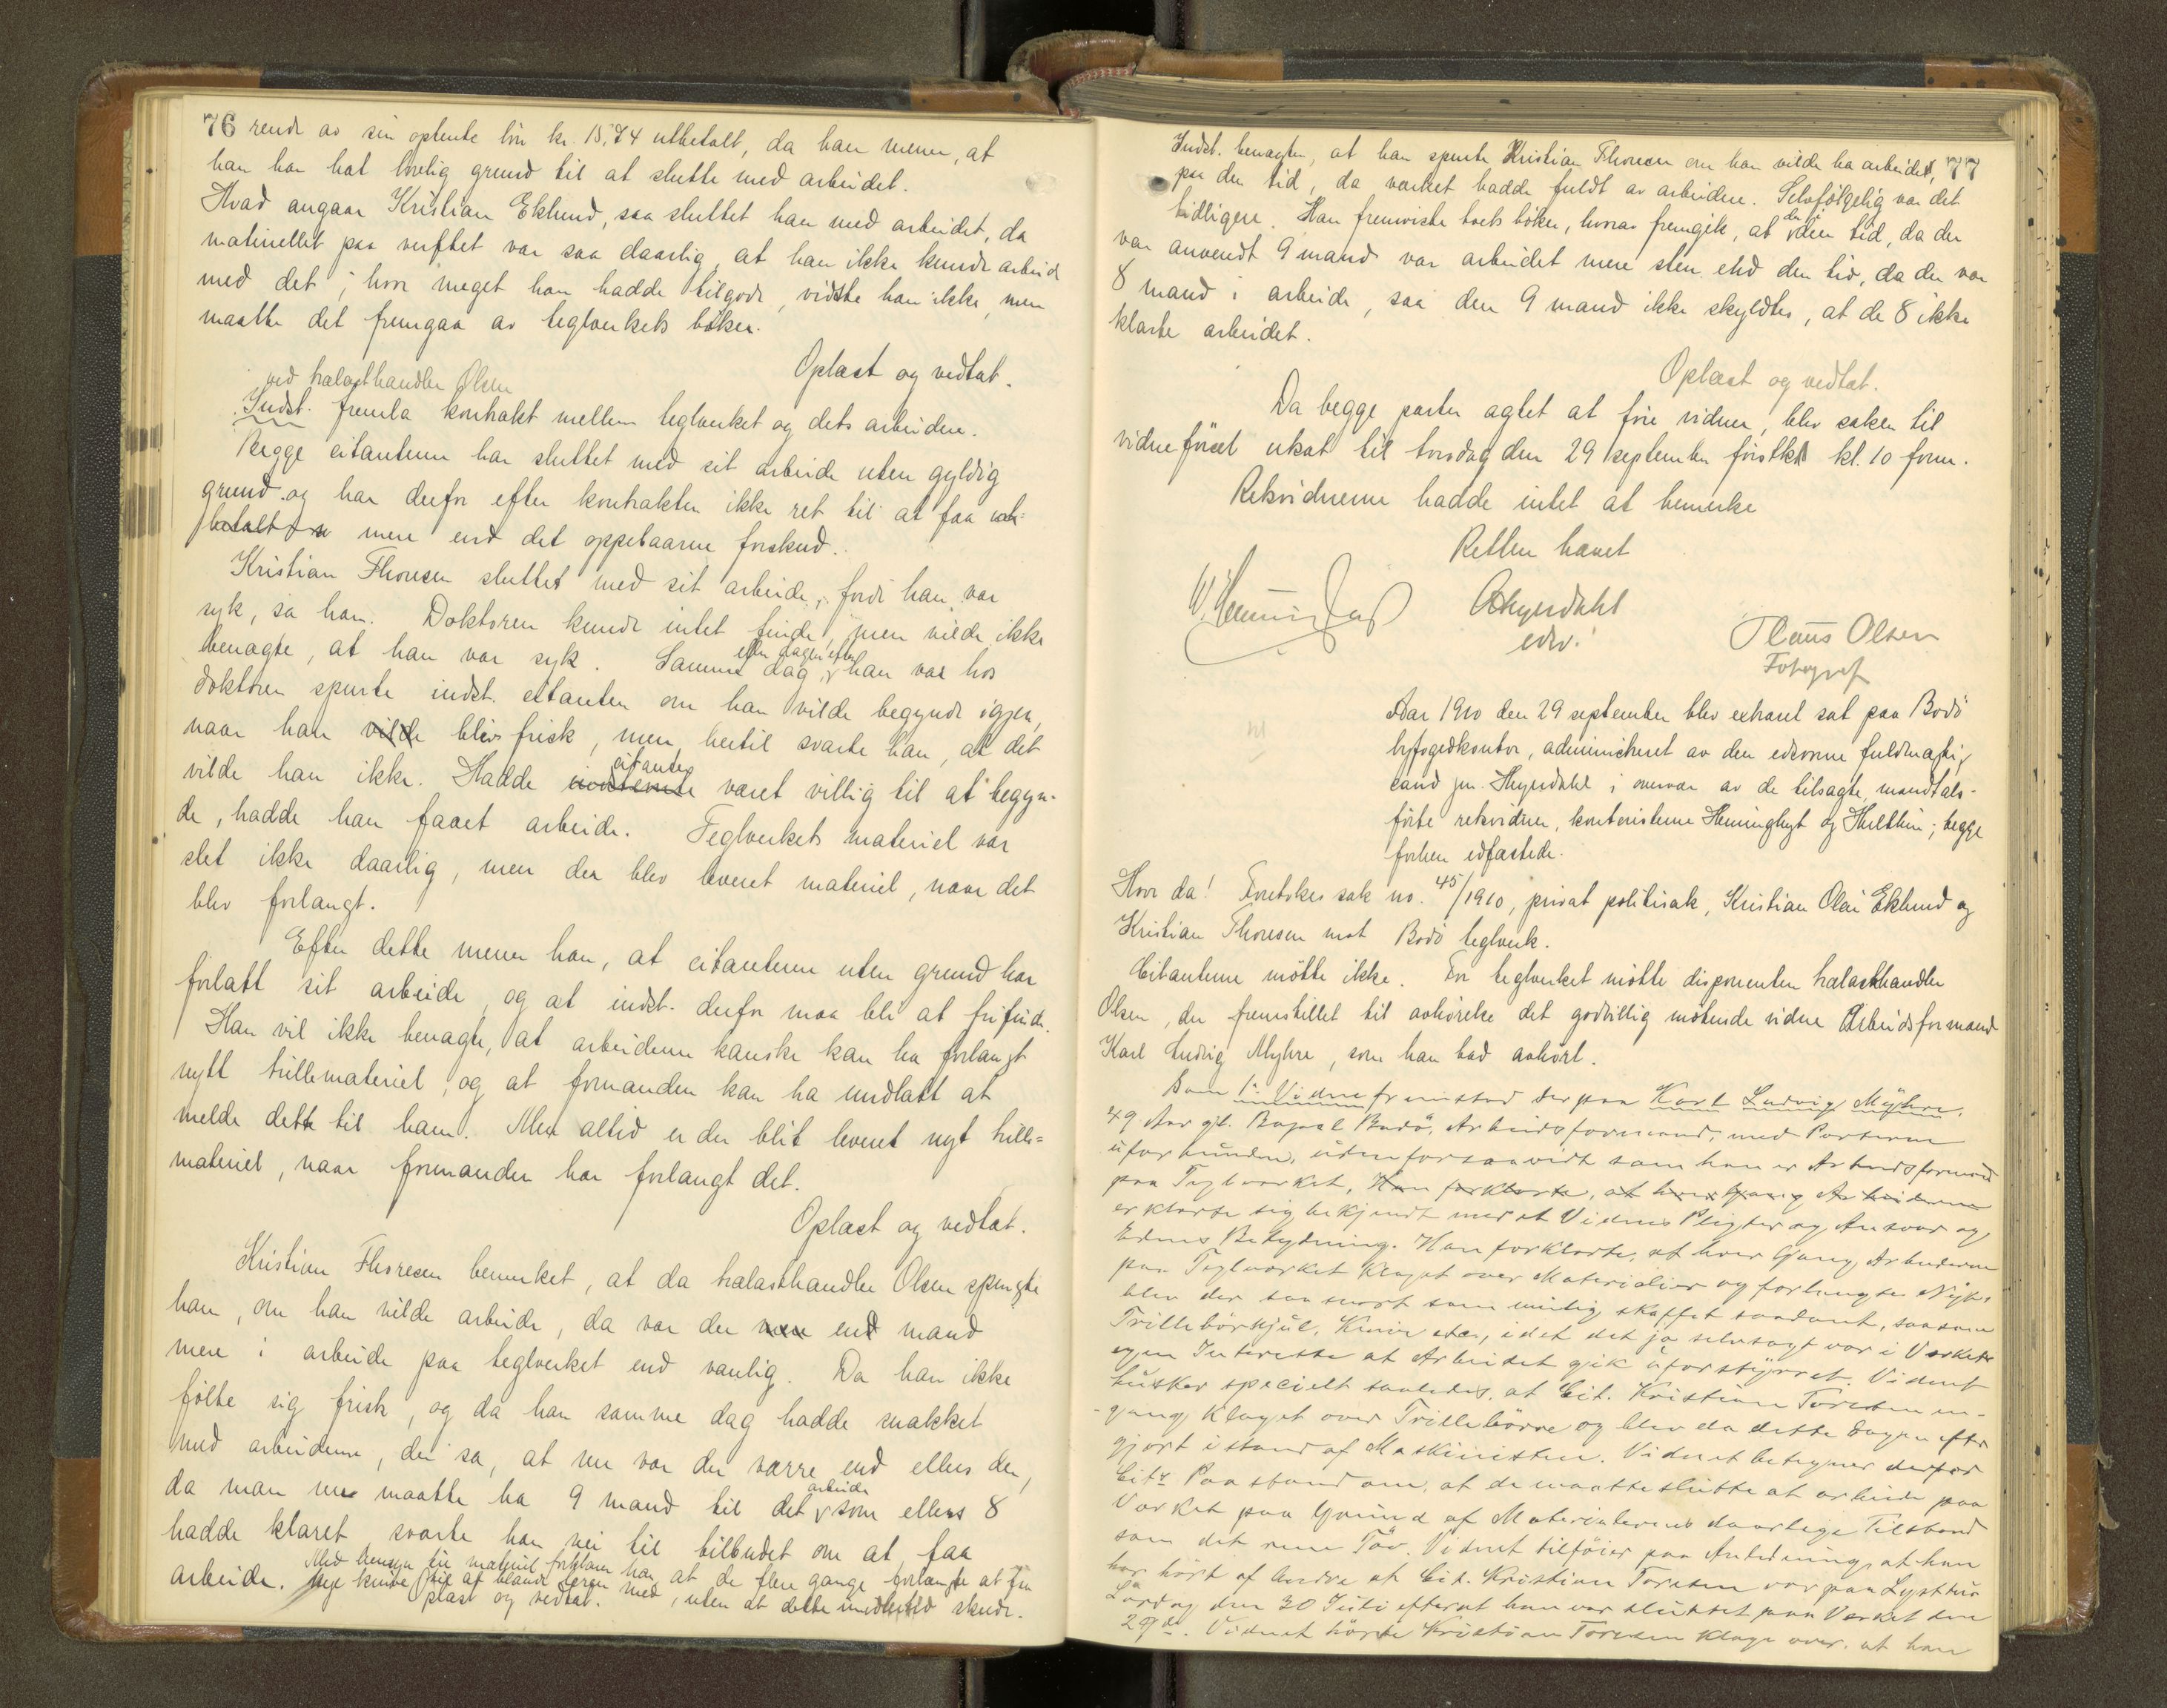 76 rende av sin optente løn kr. 15,74 utbetalt, da han mener, at
han har hat lovlig grund til at slutte med arbeidet.
Hvad angaar Kristian Eklund, saa sluttet han med arbeidet, da
materiellet paa verftet var saa daarlig, at han ikke kunde arbeide
med det; hvor meget han hadde tilgode, vidste han ikke, men
maatte det fremgaa av teglverkets bøker.
Oplæst og vedtat.
ved trælasthandler Olsen
Indst. fremla kontrakt mellem teglverket og dets arbeidere.
Begge citanterne har sluttet med sit arbeide uten gyldig
grund og har derfor efter kontrakten ikke ret til at faa
betalt mere end det oppebaarne forskud.
Kristian Thoresen sluttet med sit arbeide, fordi han var
syk, sa han. Doktoren kunde intet finde, men vilde ikke
benægte, at han var syk. Samme dag eller dagen efter han var hos
doktoren spurte indst. citanten om han vilde begynde igjen,
naar han vilde blev frisk, men hertil svarte han, at det
vilde han ikke. Hadde citanten været villig til at begyn-
de, hadde han faaet arbeide. Teglverkets materiel var
slet ikke daarlig, men der blev leveret materiel, naar det
blev forlangt.
Efter dette mener han, at citanterne uten grund har
forlatt sit arbeide, og at indst. derfor maa bli at frifinde.
Han vil ikke benægte, at arbeiderne kanske kan ha forlangt
nytt trillemateriel, og at formanden kan ha undlatt at
melde dette til ham. Men altid er der blit leveret nyt trille=
materiel, naar formanden har forlangt det.
Oplæst og vedtat.
Kristian Thoresen bemerket, at da trælasthandler Olsen spurgte
ham, om han vilde arbeide, da var der en mand
mere i arbeide paa teglverket end vanlig. Da han ikke
følte sig frisk, og da han samme dag hadde snakket
med arbeiderne, der sa, at nu var det værre end ellers der,
da man nu maatte ha 9 mand til det arbeide som ellers 8
hadde klaret, svarte han nei til tilbudet om at faa
arbeide. Med hensyn til materiel forklarer han, at de flere gange forlangte at faa
nye knive til at blande leren med, uten at dette skede.
Oplæst og vedtat.
77
Indst. benægter, at han spurte Kristian Thoresen om han vilde ha arbeidet,
paa den tid, da verket hadde fuldt av arbeidere. Selvfølgelig var det
tidligere. Han fremviste verkets bøker, hvorav fremgik, at i den tid, da der
var anvendt 9 mand var arbeidet mere sten end den tid, da der var
8 mand i arbeide, saa den 9 mand ikke skyldtes, at de 8 ikke
klarte arbeidet.
Oplæst og vedtat.
Da begge parter agtet at føre vidner, blev saken til
vidneførsel utsat til torsdag den 29 september førstk. kl. 10 form.
Retsvidnerne hadde intet at bemerke
Retten hævet
Heyerdahl
edsv.
Claus Olsen
Fotograf
Aar 1910 den 29 september blev extraret sat paa Bodø
byfogedkontor, administreret av den edsvorne fuldmægtig
cand jur. Heyerdahl i overvær av de tilsagte, mandtals-
førte retsvidner, kontoristerne Heminghyt og Hulthin; begge
forhen edfæstede.
Hvor da! Foretokes sak no. 45/1910, privat politisak, Kristian Olai Eklund og
Kristian Thoresen mot Bodø teglverk.
Citanterne møtte ikke. For teglverket møtte disponenten trælasthandler
Olsen, der fremstillet til avhørelse det godvillig møtende vidne Arbeidsformand
Karl Ludvig Myhre, som han bad avhørt.
Som 1. Vidne fremstod derpaa Karl Ludvig Myhre,
49 Aar gl. Bopæl Bodø, Arbeidsformand, med Parterne
uforbunden, udenforsaavidt som han er Arbeidsformand
paa Teglværket, Han forklarte, at hver Gang Arbeiderne
erklærte sig bekjendt med et Vidnes Pligter og Ansvar og
Edens Betydning. Han forklarte, at hver Gang Arbeiderne
paa Teglværket klaget over Materialier og forlangte Nyt,
blev der saa snart som mulig skaffet saadant, saasom
Trillebørhjul, Knive etc., idet det jo selvsagt var i Værkets
egen Interesse at Arbeidet gik uforstyrret. Vidnet
husker specielt saaledes, at Cit. Kristian Toresen en-
gang klaget over Trillebøren og blev da dette Dagen efter
gjort istand af Maskinisten. Vidnet betegner derfor
Citr Paastand om, at de maatte slutte at arbeide paa
Værket paa Grund af Materialernes daarlige Tilstand
som det rene Tøv. Vidnet tilføier paa Anledning, at han
har hørt af Andre at Cit. Kristian Toresen var paa Lysttur
Lørdag den 30 Juli efterat han var sluttet paa Værket den
29de. Vidnet hørte Kristian Toresen klage over, at han